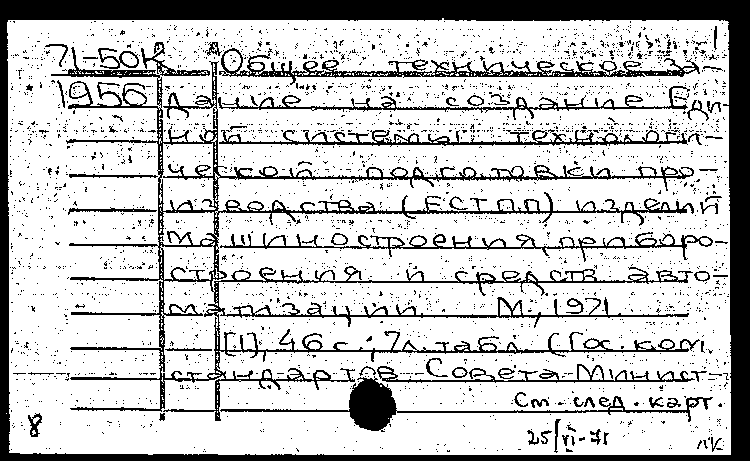 1
71-50К Общее техническое за-
1956 дание на создание Еди-
ной системы технологи-
ческой подготовки про-
изводства (ЕСТПП) изделий
машиностроения, приборо-
строения и средств авто-
матизации. М., 1971.
[1], 46 с.; 7 л. табл. (Гос. ком.
стандартов Совета Минист-
См. след. карт.
8 25/VI-71